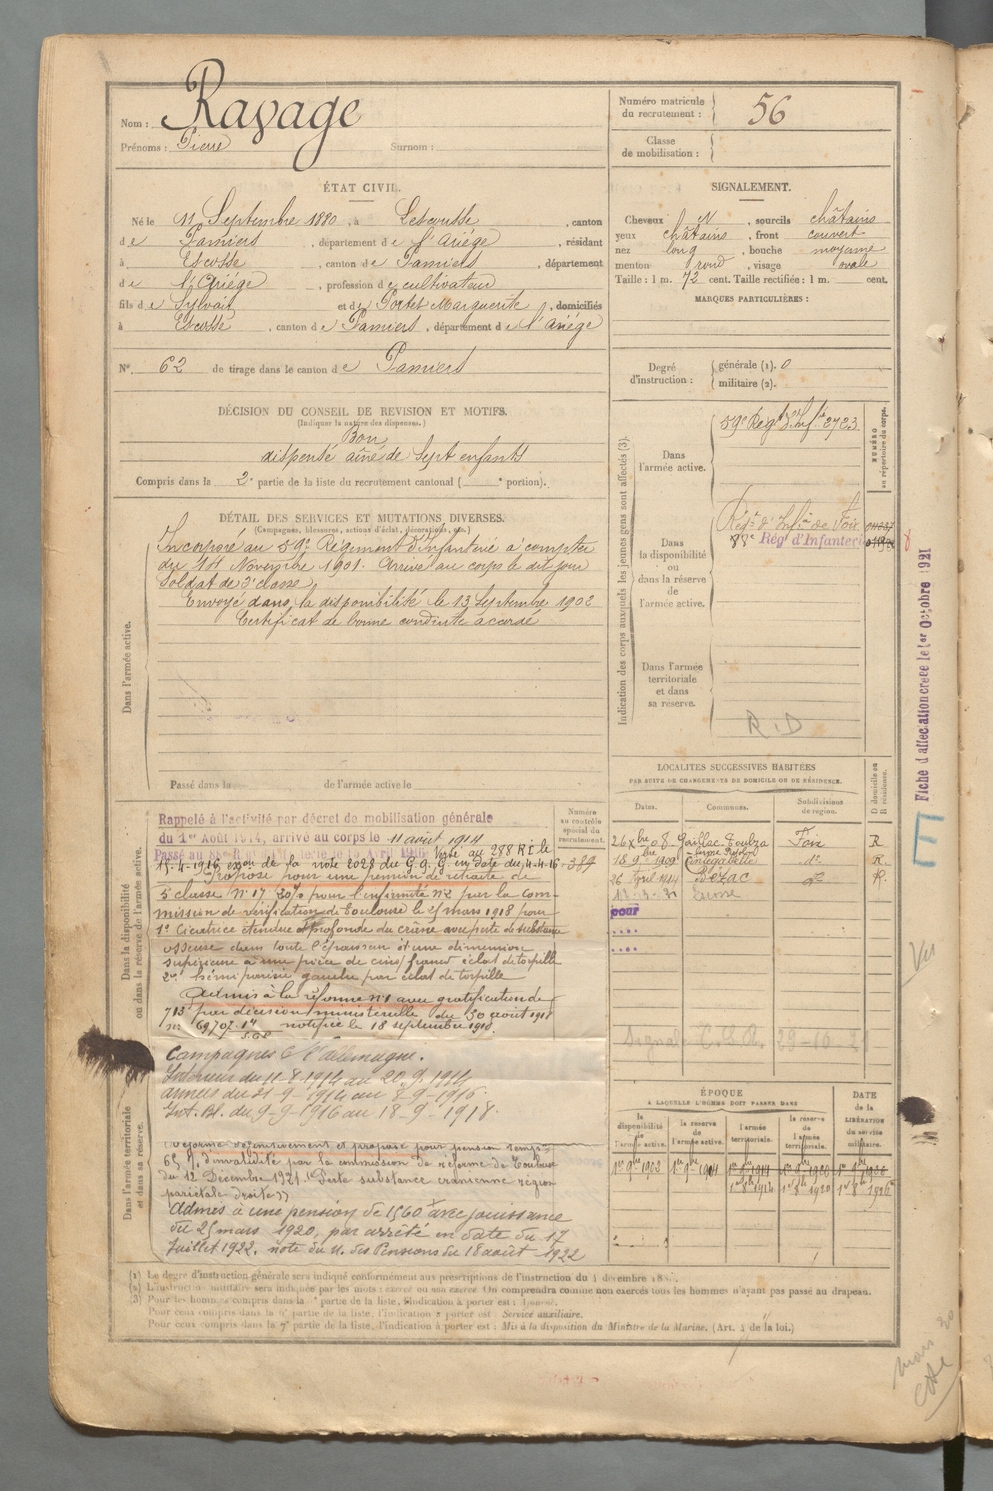 Nom : Ravage
Prénoms : Pierre Surnom :
Numéro matricule du recrutement : 56
Classe de mobilisation :
ÉTAT CIVIL.
Né le 11 Septembre 1880, à Lescousse, canton
de Pamiers, département de l'Ariège, résidant
à Escosse, canton de Pamiers, département
de l'Ariège, profession de cultivateur
fils de Sylvain et de Portet Marguerite, domiciliés
à Escosse, canton de Pamiers, département de l'Ariège
N° 62 de tirage dans le canton de Pamiers
SIGNALEMENT.
Cheveux N, sourcils châtains
yeux châtains, front couvert
nez long, bouche moyenne
menton rond, visage ovale
Taille : 1 m. 72 cent. Taille rectifiée : 1 m. cent.
MARQUES PARTICULIÈRES :
Degré d'instruction : générale (1). 0
militaire (2).
DÉCISION DU CONSEIL DE REVISION ET MOTIFS.
(Indiquer la nature des dispenses.)
Bon
dispensé aîné de sept enfants
Compris dans la 2e partie de la liste du recrutement cantonal ( e portion).
DÉTAIL DES SERVICES ET MUTATIONS DIVERSES.
(Campagnes, blessures, actions d'éclat, décorations, etc.)
Dans l'armée active.
Incorporé au 59e Régiment d'Infanterie à compter
du 1er Novembre 1901. Arrivé au corps le dit jour
Soldat de 2e classe.
Envoyé dans la disponibilité le 13 Septembre 1902
Certificat de bonne conduite accordé
Passé dans la de l'armée active le
Indication des corps auxquels les jeunes gens sont affectés (3).
NUMÉRO au répertoire du corps.
Dans l'armée active.
59e Régt d'Infie 2723
Dans la disponibilité ou dans la réserve de l'armée active.
Régt d'Infie de Foix
88e Rég d'Infanterie
Dans l'armée territoriale et dans sa réserve.
R.D
Fiche d'affectation créée le 1er Octobre 1921
E
Vu
LOCALITÉS SUCCESSIVES HABITÉES
PAR SUITE DE CHANGEMENTS DE DOMICILE OU DE RÉSIDENCE.
Dates. Communes. Subdivisions de région. D domicile ou R résidence.
26 Xbre 08 Gaillac-Toulza Foix R
18 9bre 1909 Cintegabelle do R.
26 Avril 1914 Bézac do R.
pour
Signalé C.S.R. 29-10-2
Dans la disponibilité ou dans la réserve de l'armée active.
Numéro au contrôle spécial du recrutement.
Rappelé à l'activité par décret de mobilisation générale
du 1er Août 1914, arrivé au corps le 11 août 1914
Versé au 288 R.I. le
15-4-1916, exon de la note 2028 du G.Q.G en date du 4-4-16
387
Proposé pour une pension de retraite de
5e classe n° 17, 20% pour l'infirmité n°2 par la com-
mission de vérification de Toulouse le 5 mars 1918 pour
1° Cicatrice étendue et profonde du crâne avec perte de substance
osseuse dans toute l'épaisseur et une dimension
supérieure à une pièce de cinq francs éclat de torpille
2° hémiparésie gauche par éclat de torpille
Admis à la réforme n°1 avec gratification de
713f par décision ministérielle du 30 août 1918
notifiée le 18 septembre 1918.
Campagnes C l'Allemagne.
Intérieur du 11-8-1914 au 20-9-1914
Armées du 21-9-1914 au 8-9-1916
Int. Bl. du 9-9-1916 au 18-9-1918.
Dans l'armée territoriale et dans sa réserve.
Réformé définitivement et proposé pour pension temp.
65 % d'invalidité par la commission de réforme de Toulouse
du 12 Décembre 1921. "Perte substance crânienne région
pariétale droite"
Admis à une pension de 1560f avec jouissance
du 25 mars 1920, par arrêté en date du 17
Juillet 1922, note du M. des Pensions du 18 août 1922
ÉPOQUE
À LAQUELLE L'HOMME DOIT PASSER DANS
la disponibilité de l'armée active. la réserve de l'armée active. l'armée territoriale. la réserve de l'armée territoriale.
DATE de la LIBÉRATION du service militaire.
1er 9bre 1902 1er 9bre 1904 1er 8bre 1914 1er 8bre 1920 1er 8bre 1926
(1) Le degré d'instruction générale sera indiqué conformément aux prescriptions de l'instruction du 4 décembre 18
(2) L'instruction militaire sera indiquée par les mots : exercé ou non exercé. On comprendra comme non exercés tous les hommes n'ayant pas passé au drapeau.
(3) Pour les hommes compris dans la e partie de la liste, l'indication à porter est : Ajourné.
Pour ceux compris dans la 6e partie de la liste, l'indication à porter est : Service auxiliaire.
Pour ceux compris dans la 7e partie de la liste, l'indication à porter est : Mis à la disposition du Ministre de la Marine. (Art. 4 de la loi.)